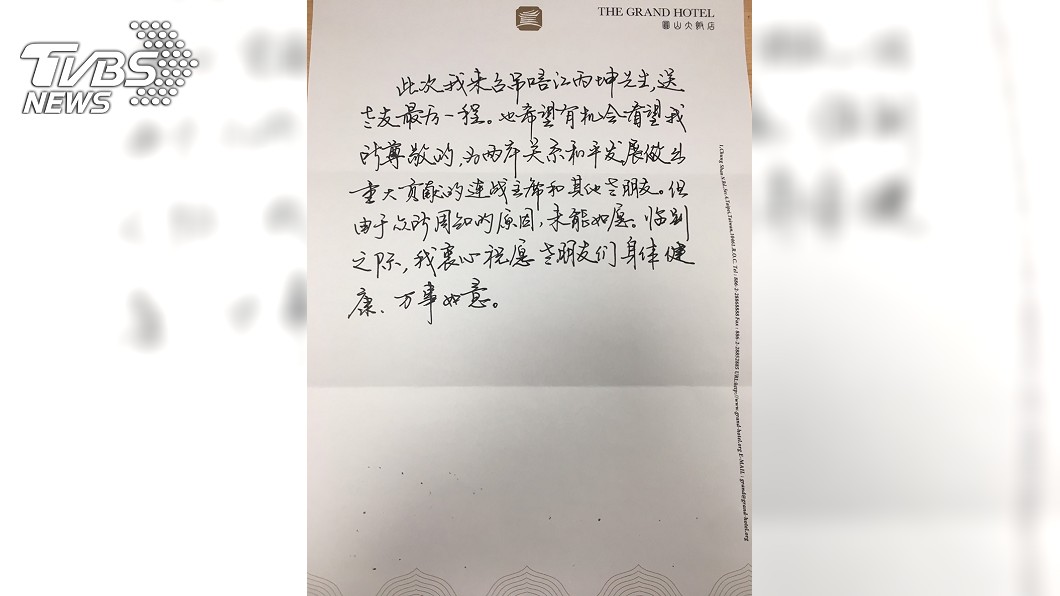 TVBS
NEWS
THE GRAND HOTEL
圓山大飯店
此次我来台吊唁江丙坤先生,送
老友最后一程。也希望有机会看望我
所尊敬的,为两岸关系和平发展做出
重大贡献的连战主席和其他老朋友。但
由于众所周知的原因,未能如愿。临别
之际,我衷心祝愿老朋友们身体健
康、万事如意。
1,Chung Shan N.Rd.,Sec.4,Taipei,Taiwan,10461,R.O.C. Tel : 886-2-28868888 Fax : 886-2-28852885 URL:http://www.grand-hotel.org E-MAIL : grand@grand-hotel.org